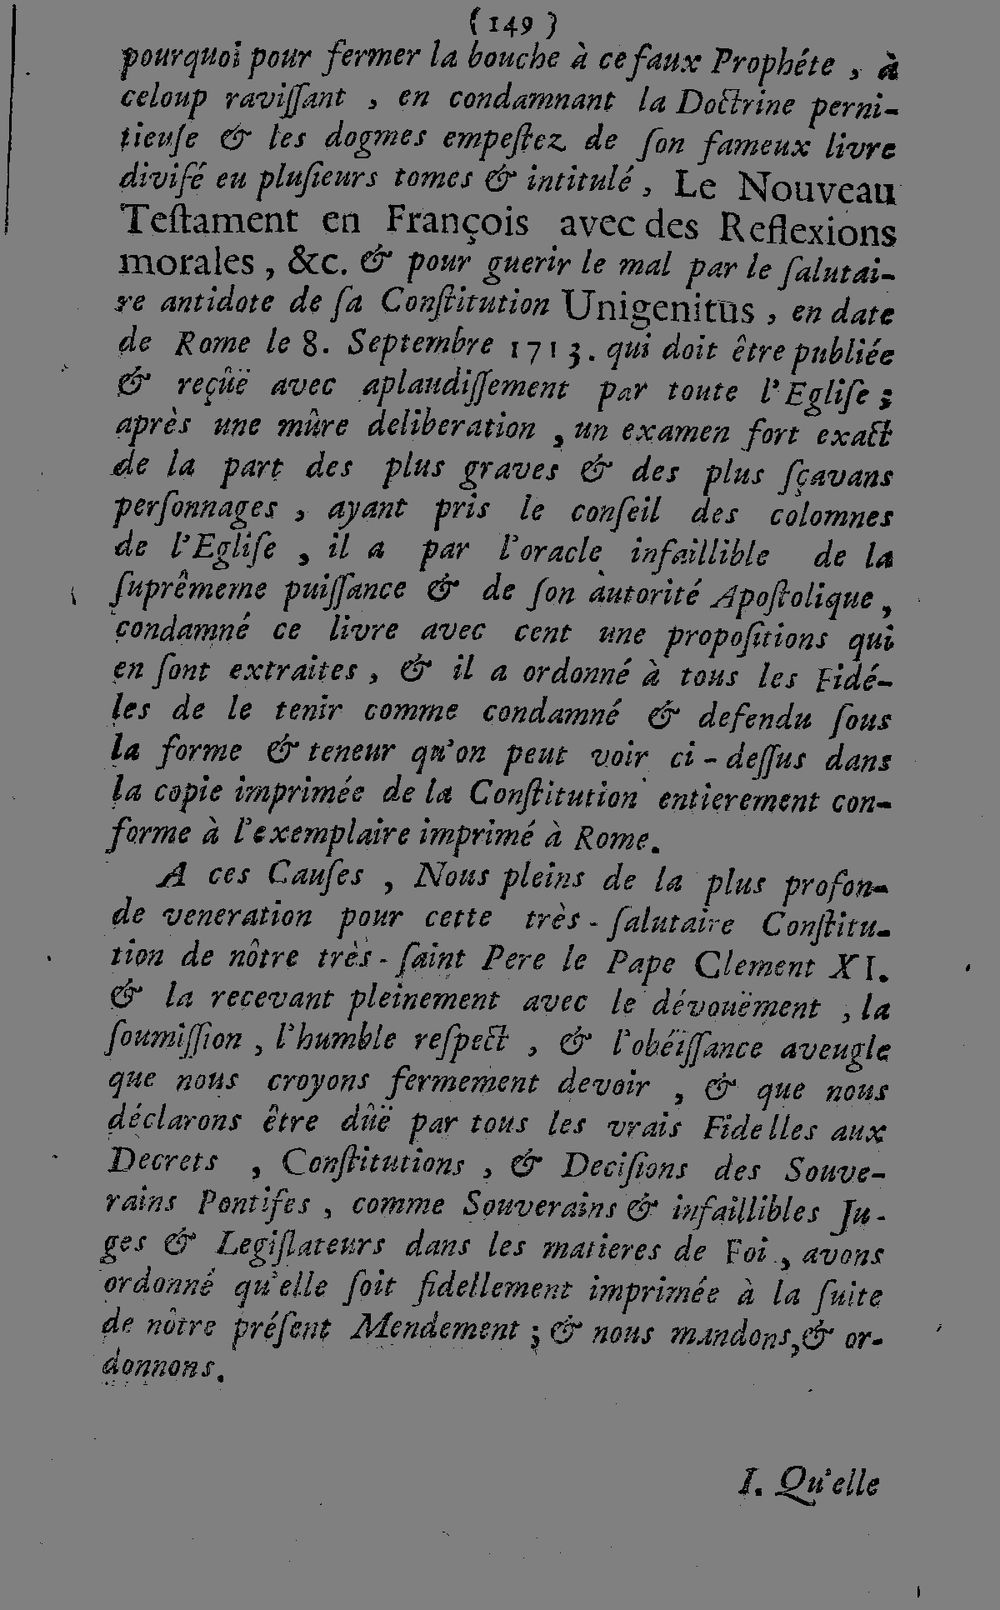 (149)
pourquoi pour fermer la bouche à ce faux Prophéte, à
celoup ravissant, en condamnant la Doctrine perni-
tieuse & les dogmes empestez de son fameux livre
divisé en plusieurs tomes & intitulé, Le Nouveau
Testament en François avec des Reflexions
morales, &c. & pour guerir le mal par le salutai-
re antidote de sa Constitution Unigenitus, en date
de Rome le 8. Septembre 1713. qui doit être publiée
& reçûë avec aplaudissement par toute l'Eglise;
après une mûre deliberation, un examen fort exact
de la part des plus graves & des plus sçavans
personnages, ayant pris le conseil des colomnes
de l'Eglise, il a par l'oracle infaillible de la
suprêmeme puissance & de son autorité Apostolique,
condamné ce livre avec cent une propositions qui
en sont extraites, & il a ordonné à tous les Fidé-
les de le tenir comme condamné & defendu sous
la forme & teneur qu'on peut voir ci-dessus dans
la copie imprimée de la Constitution entierement con-
forme à l'exemplaire imprimé à Rome.
A ces Causes, Nous pleins de la plus profon-
de veneration pour cette très-salutaire Constitu-
tion de nôtre très-saint Pere le Pape Clement XI.
& la recevant pleinement avec le dévouëment, la
soumission, l'humble respect, & l'obéïssance aveugle
que nous croyons fermement devoir, & que nous
déclarons être dûë par tous les vrais Fidelles aux
Decrets, Constitutions, & Decisions des Souve-
rains Pontifes, comme Souverains & infaillibles Ju-
ges & Legislateurs dans les matieres de Foi, avons
ordonné qu'elle soit fidellement imprimée à la suite
de nôtre présent Mendement; & nous mandons, & or-
donnons.
I. Qu'elle